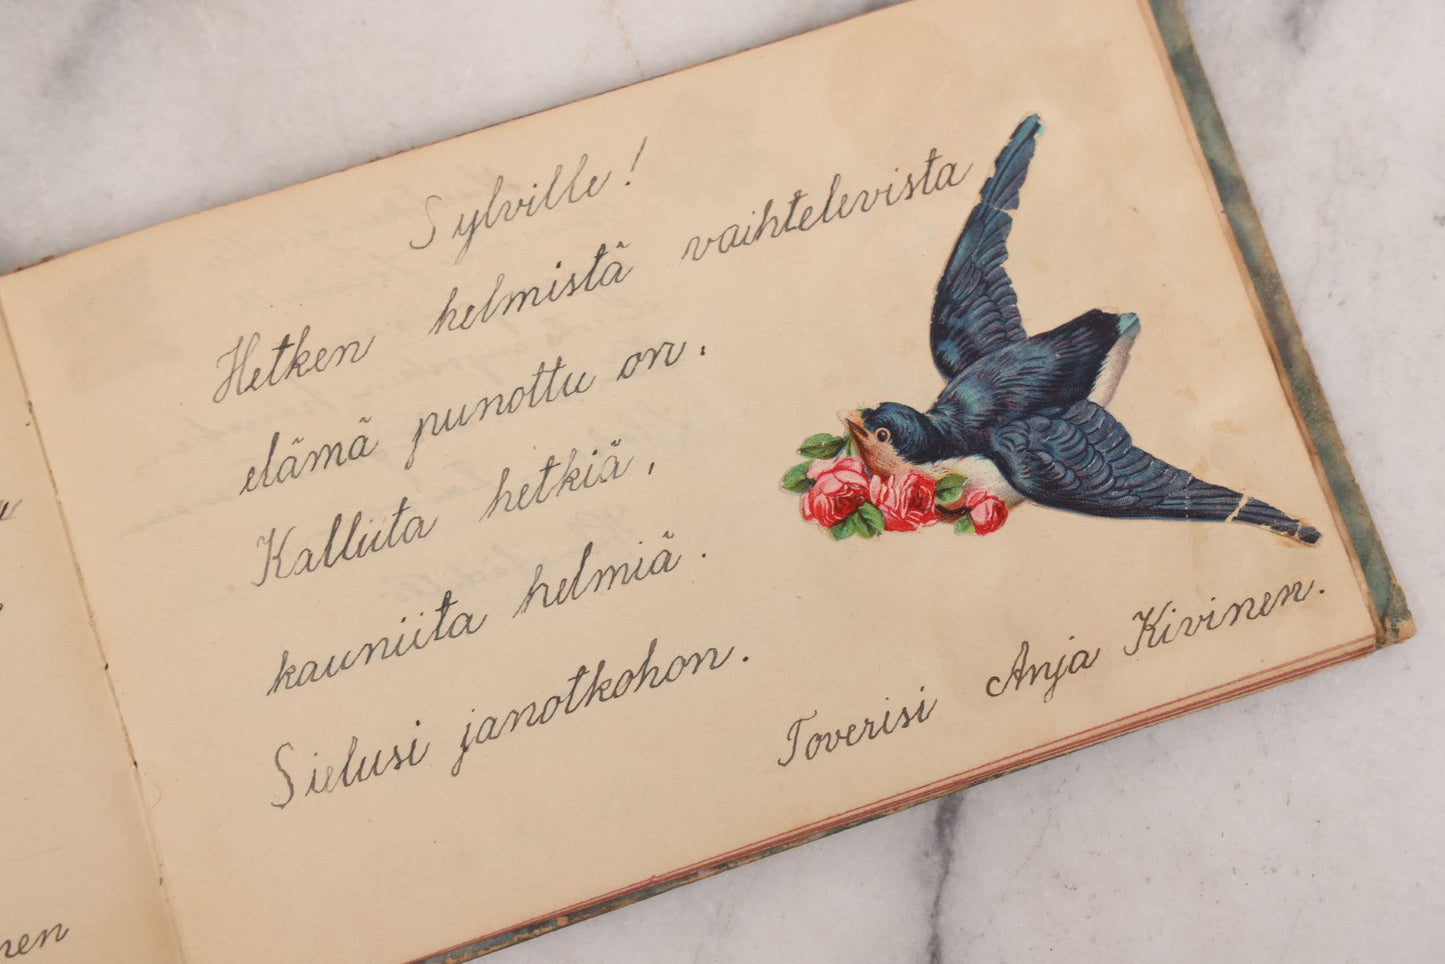 Sylville!
Hetken helmistä vaihtelevista
elämä punottu on.
Kalliita hetkiä,
kauniita helmiä.
Sielusi janotkohon.
Toverisi Anja Kivinen.
nen